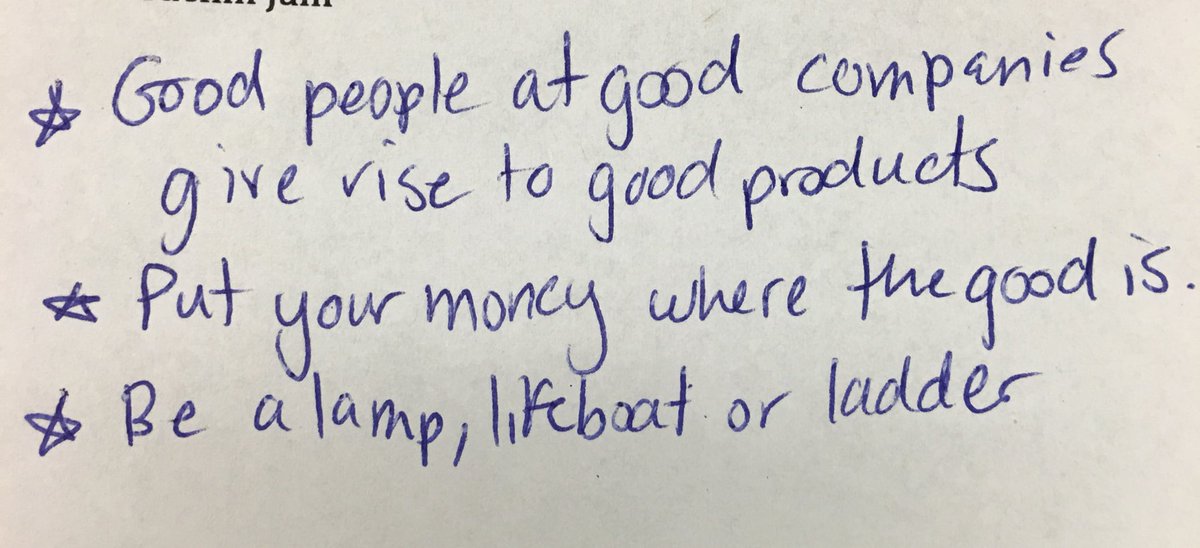 ☆ Good people at good companies
give rise to good products
☆ Put your money where the good is.
☆ Be a lamp, lifeboat or ladder